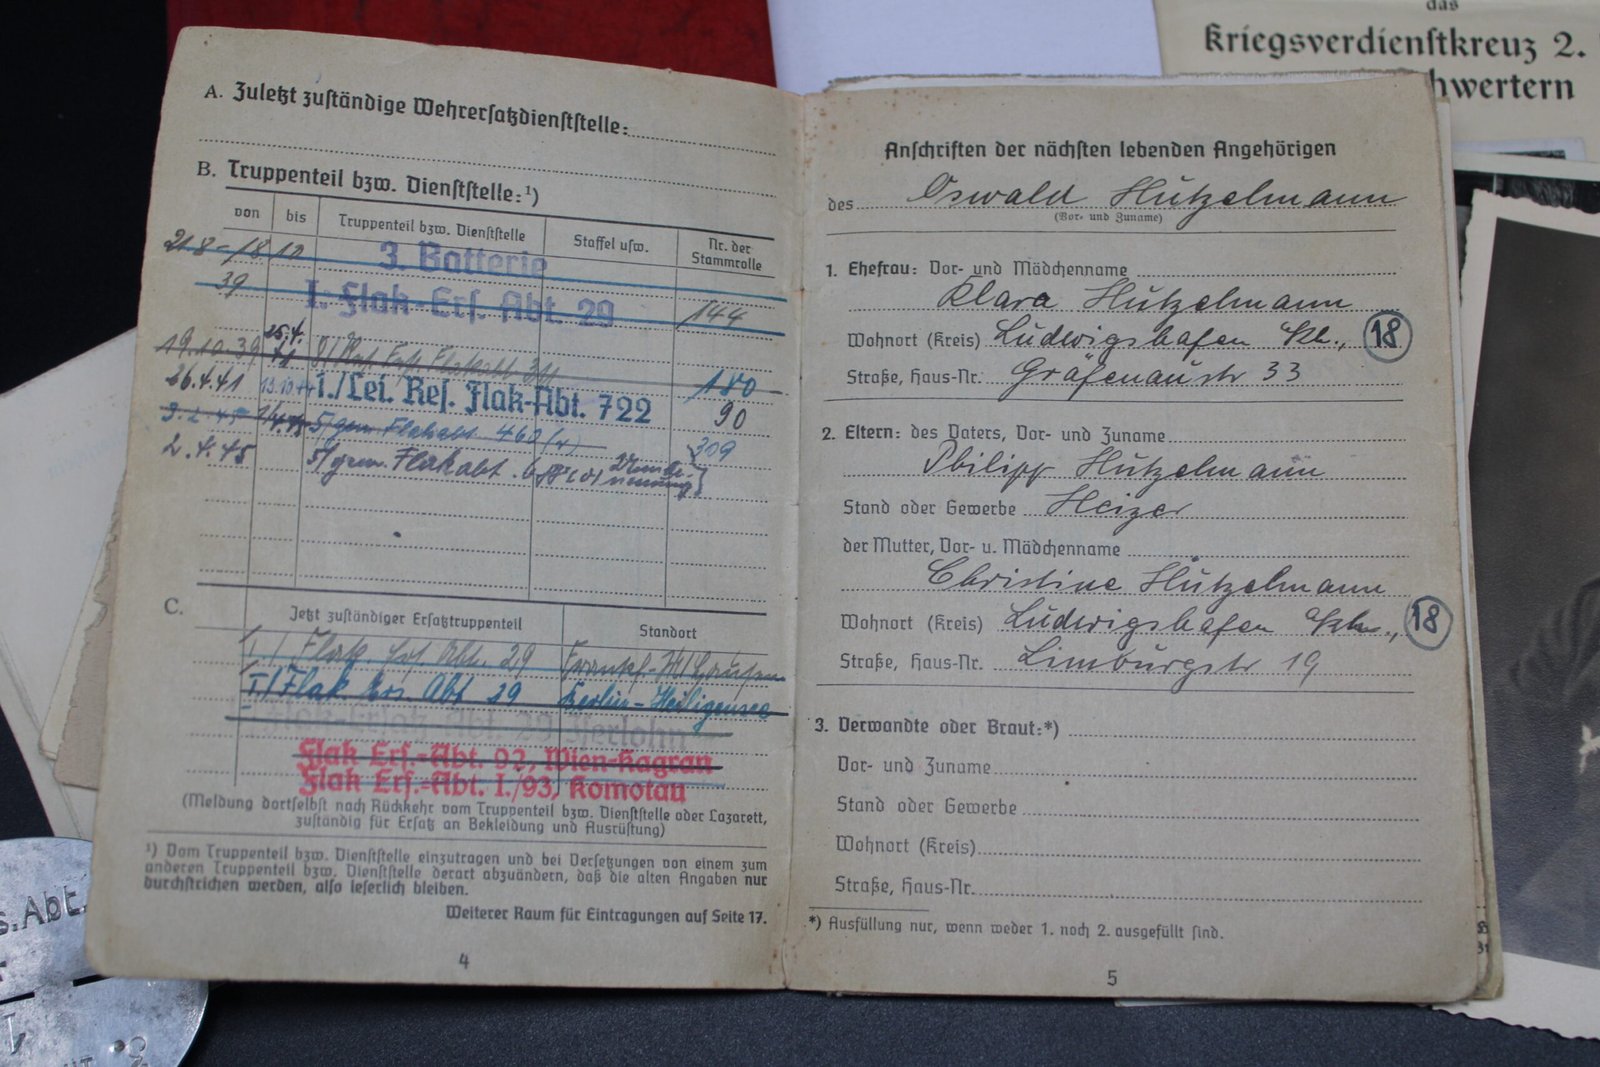 das
Kriegsverdienstkreuz 2.
hwertern
A. Zuletzt zuständige Wehrersatzdienststelle:
B. Truppenteil bzw. Dienststelle:¹)
von bis Truppenteil bzw. Dienststelle Staffel usw. Nr. der Stammrolle
21.8.- 18.10
3. Batterie
39
I. Flak-Ers. Abt. 29 144
19.10.39 25.4. 41 180
26.4.41 1./Lei. Res. Flak-Abt. 722 90
5/gem. Flakabt. 460 (v) 309
2.4.45 5/gem. Flakabt. (v)
C.
Jetzt zuständiger Ersatztruppenteil Standort
I/ Flak. Abt. 29
I/Flak Ers. Abt 29 Berlin-Heiligensee
Flak-Ersatz Abt. 29 Iserlohn
Flak Ers.-Abt. 92, Wien-Kagran
Flak Ers.-Abt. I./93, Komotau
(Meldung dortselbst nach Rückkehr vom Truppenteil bzw. Dienststelle oder Lazarett,
zuständig für Ersatz an Bekleidung und Ausrüstung)
¹) Vom Truppenteil bzw. Dienststelle einzutragen und bei Versetzungen von einem zum
anderen Truppenteil bzw. Dienststelle derart abzuändern, daß die alten Angaben nur
durchstrichen werden, also leserlich bleiben.
Weiterer Raum für Eintragungen auf Seite 17.
4
Anschriften der nächsten lebenden Angehörigen
des Oswald Hützelmann
(Vor- und Zuname)
1. Ehefrau: Vor- und Mädchenname
Klara Hützelmann
Wohnort (Kreis) Ludwigshafen a/Rh., 18
Straße, Haus-Nr. Gräfenaustr 33
2. Eltern: des Vaters, Vor- und Zuname
Philipp Hützelmann
Stand oder Gewerbe Heizer
der Mutter, Vor- u. Mädchenname
Christine Hützelmann
Wohnort (Kreis) Ludwigshafen a/Rh., 18
Straße, Haus-Nr. Limburgstr 19
3. Verwandte oder Braut:*)
Vor- und Zuname
Stand oder Gewerbe
Wohnort (Kreis)
Straße, Haus-Nr.
*) Ausfüllung nur, wenn weder 1. noch 2. ausgefüllt sind.
5
s.Abt.